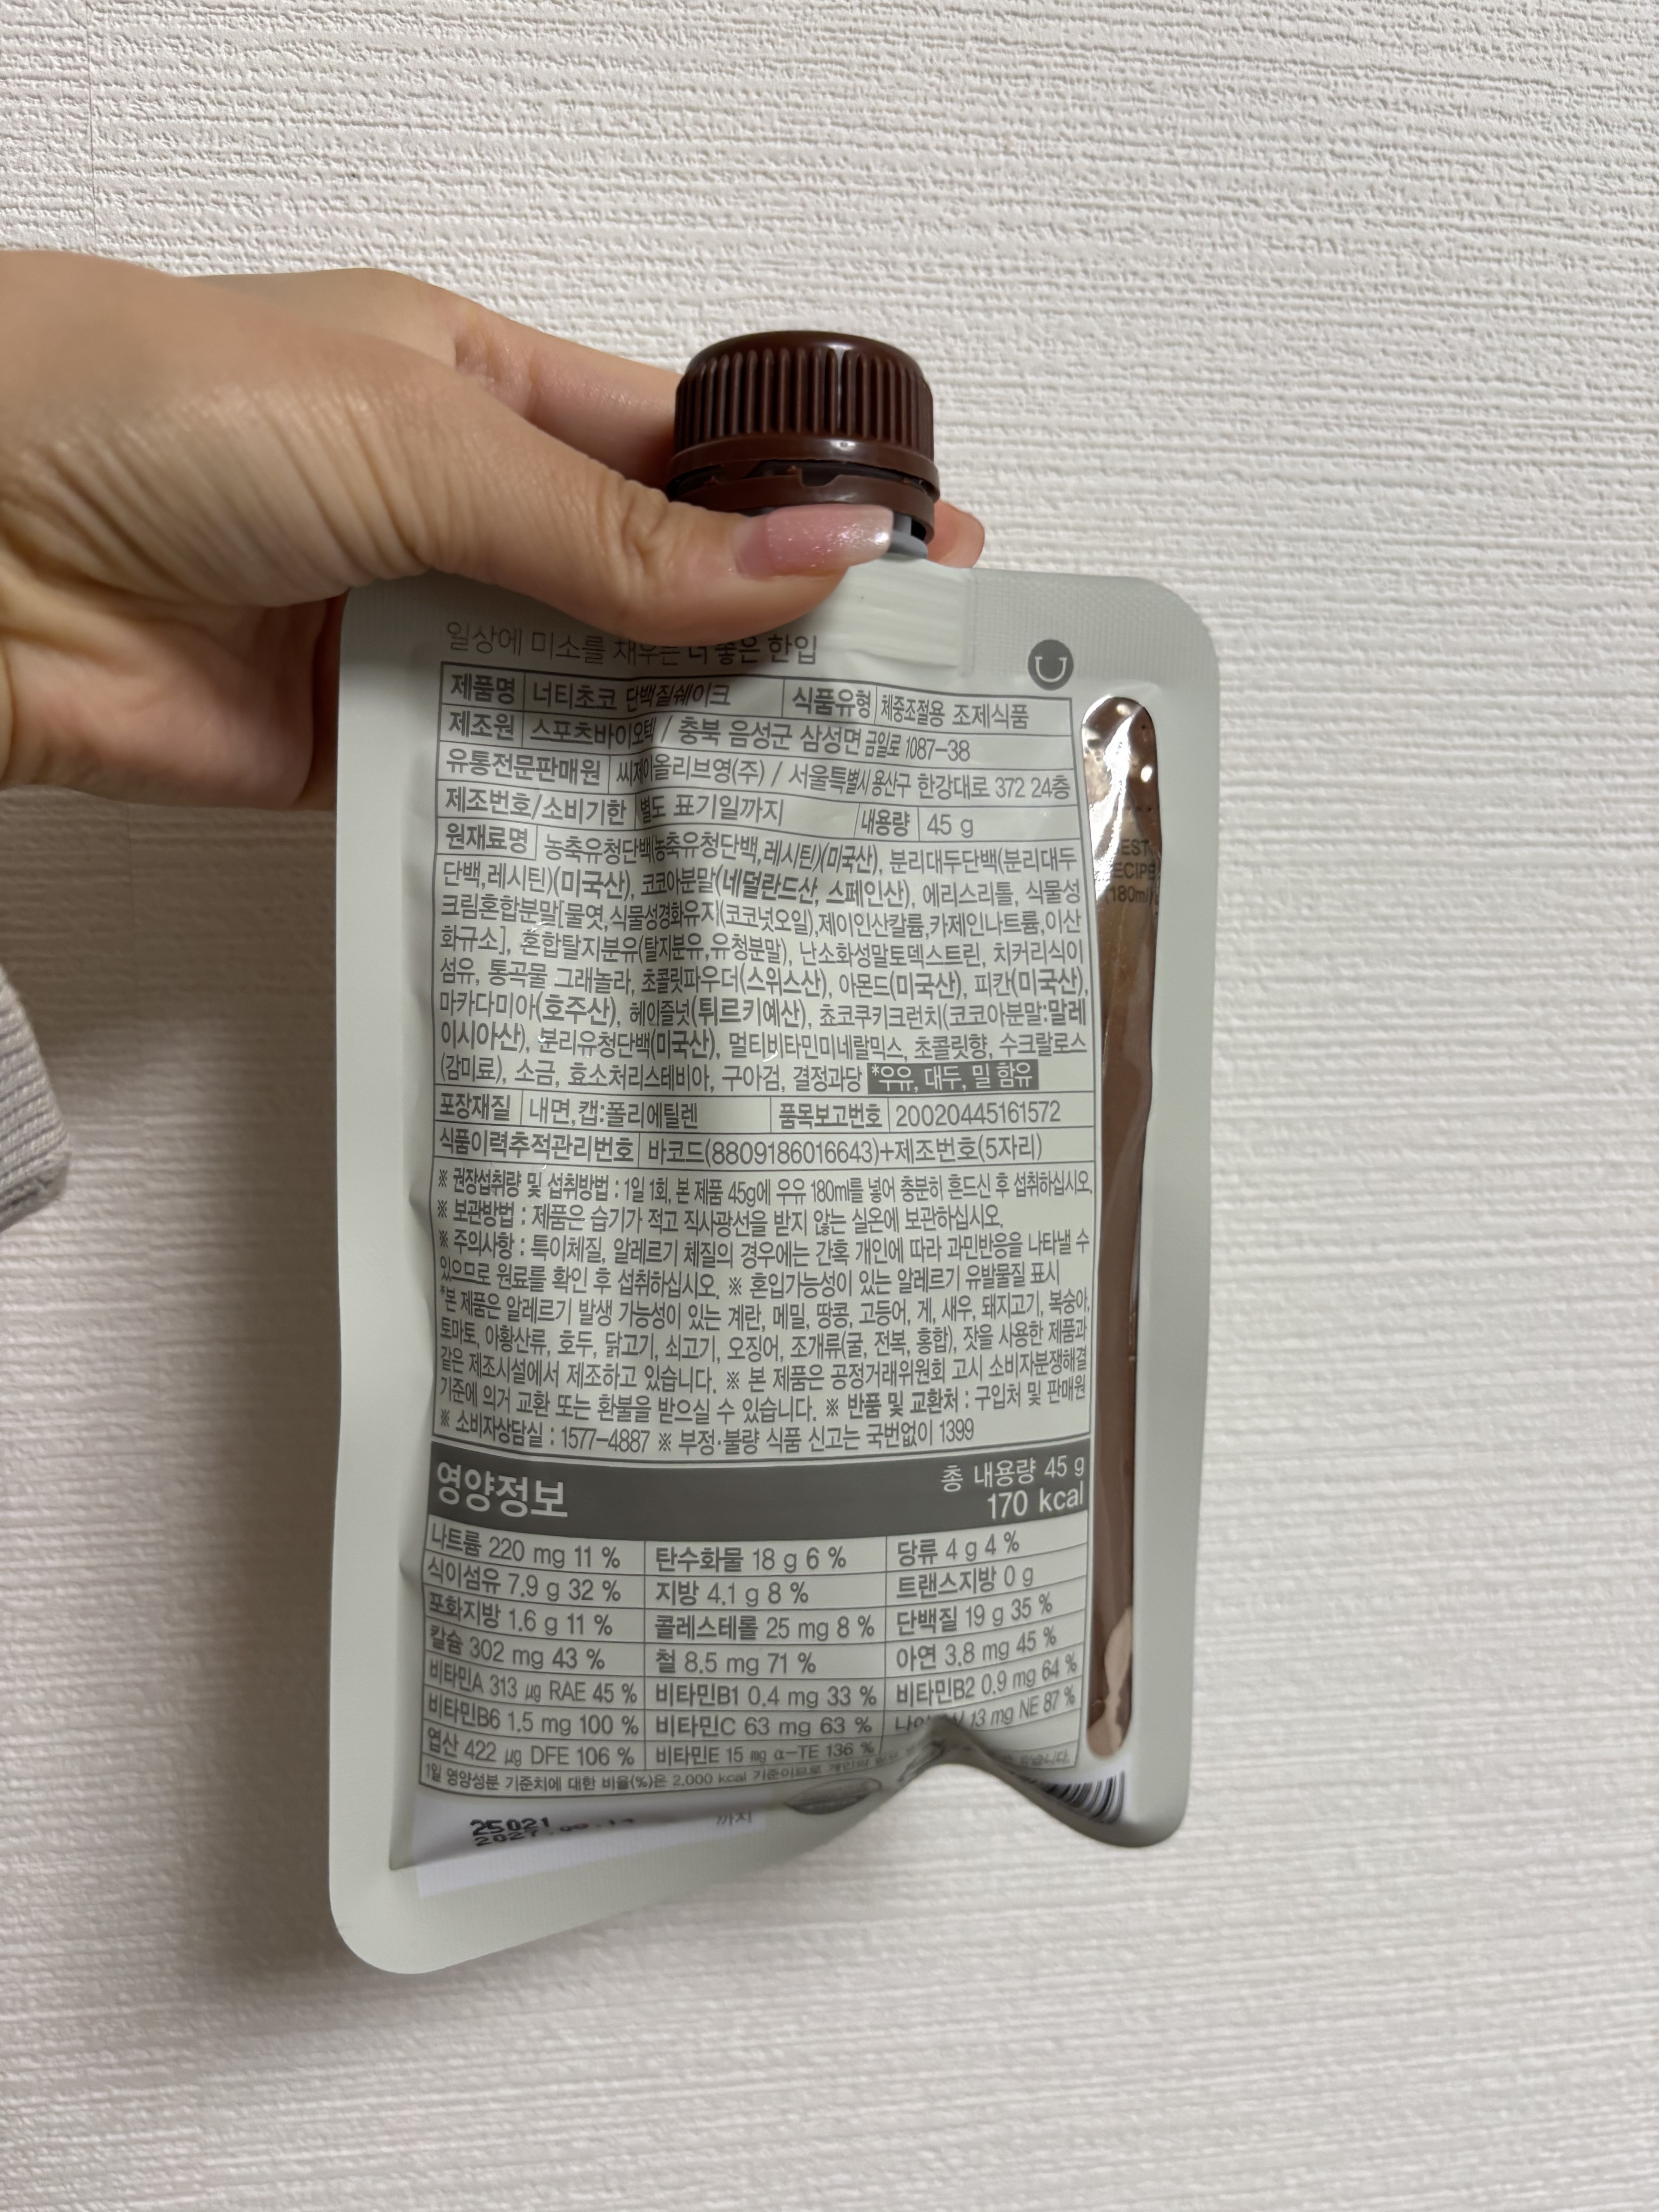 일상에 미소를 채우는 더 좋은 한입
제품명 너티초코 단백질쉐이크 식품유형 체중조절용 조제식품
제조원 스포츠바이오텍 / 충북 음성군 삼성면 금일로 1087-38
유통전문판매원 씨제이올리브영(주) / 서울특별시 용산구 한강대로 372 24층
제조번호/소비기한 별도 표기일까지 내용량 45 g
원재료명 농축유청단백(농축유청단백,레시틴)(미국산), 분리대두단백(분리대두
단백,레시틴)(미국산), 코코아분말(네덜란드산, 스페인산), 에리스리톨, 식물성
크림혼합분말[물엿,식물성경화유지(코코넛오일),제이인산칼륨,카제인나트륨,이산
화규소], 혼합탈지분유(탈지분유,유청분말), 난소화성말토덱스트린, 치커리식이
섬유, 통곡물 그래놀라, 초콜릿파우더(스위스산), 아몬드(미국산), 피칸(미국산),
마카다미아(호주산), 헤이즐넛(튀르키예산), 쵸코쿠키크런치(코코아분말:말레
이시아산), 분리유청단백(미국산), 멀티비타민미네랄믹스, 초콜릿향, 수크랄로스
(감미료), 소금, 효소처리스테비아, 구아검, 결정과당 *우유, 대두, 밀 함유
포장재질 내면,캡:폴리에틸렌 품목보고번호 20020445161572
식품이력추적관리번호 바코드(8809186016643)+제조번호(5자리)
※ 권장섭취량 및 섭취방법 : 1일 1회, 본 제품 45g에 우유 180ml를 넣어 충분히 흔드신 후 섭취하십시오.
※ 보관방법 : 제품은 습기가 적고 직사광선을 받지 않는 실온에 보관하십시오.
※ 주의사항 : 특이체질, 알레르기 체질의 경우에는 간혹 개인에 따라 과민반응을 나타낼 수
있으므로 원료를 확인 후 섭취하십시오. ※ 혼입가능성이 있는 알레르기 유발물질 표시
*본 제품은 알레르기 발생 가능성이 있는 계란, 메밀, 땅콩, 고등어, 게, 새우, 돼지고기, 복숭아,
토마토, 아황산류, 호두, 닭고기, 쇠고기, 오징어, 조개류(굴, 전복, 홍합), 잣을 사용한 제품과
같은 제조시설에서 제조하고 있습니다. ※ 본 제품은 공정거래위원회 고시 소비자분쟁해결
기준에 의거 교환 또는 환불을 받으실 수 있습니다. ※ 반품 및 교환처 : 구입처 및 판매원
※ 소비자상담실 : 1577-4887 ※ 부정·불량 식품 신고는 국번없이 1399
영양정보 총 내용량 45 g
170 kcal
나트륨 220 mg 11 % 탄수화물 18 g 6 % 당류 4 g 4 %
식이섬유 7.9 g 32 % 지방 4.1 g 8 % 트랜스지방 0 g
포화지방 1.6 g 11 % 콜레스테롤 25 mg 8 % 단백질 19 g 35 %
칼슘 302 mg 43 % 철 8.5 mg 71 % 아연 3.8 mg 45 %
비타민A 313 μg RAE 45 % 비타민B1 0.4 mg 33 % 비타민B2 0.9 mg 64 %
비타민B6 1.5 mg 100 % 비타민C 63 mg 63 % 13 mg NE 87 %
엽산 422 μg DFE 106 % 비타민E 15 mg α-TE 136 %
1일 영양성분 기준치에 대한 비율(%)은 2,000 kcal 기준이므로 개인의
25021
까지
(180ml)